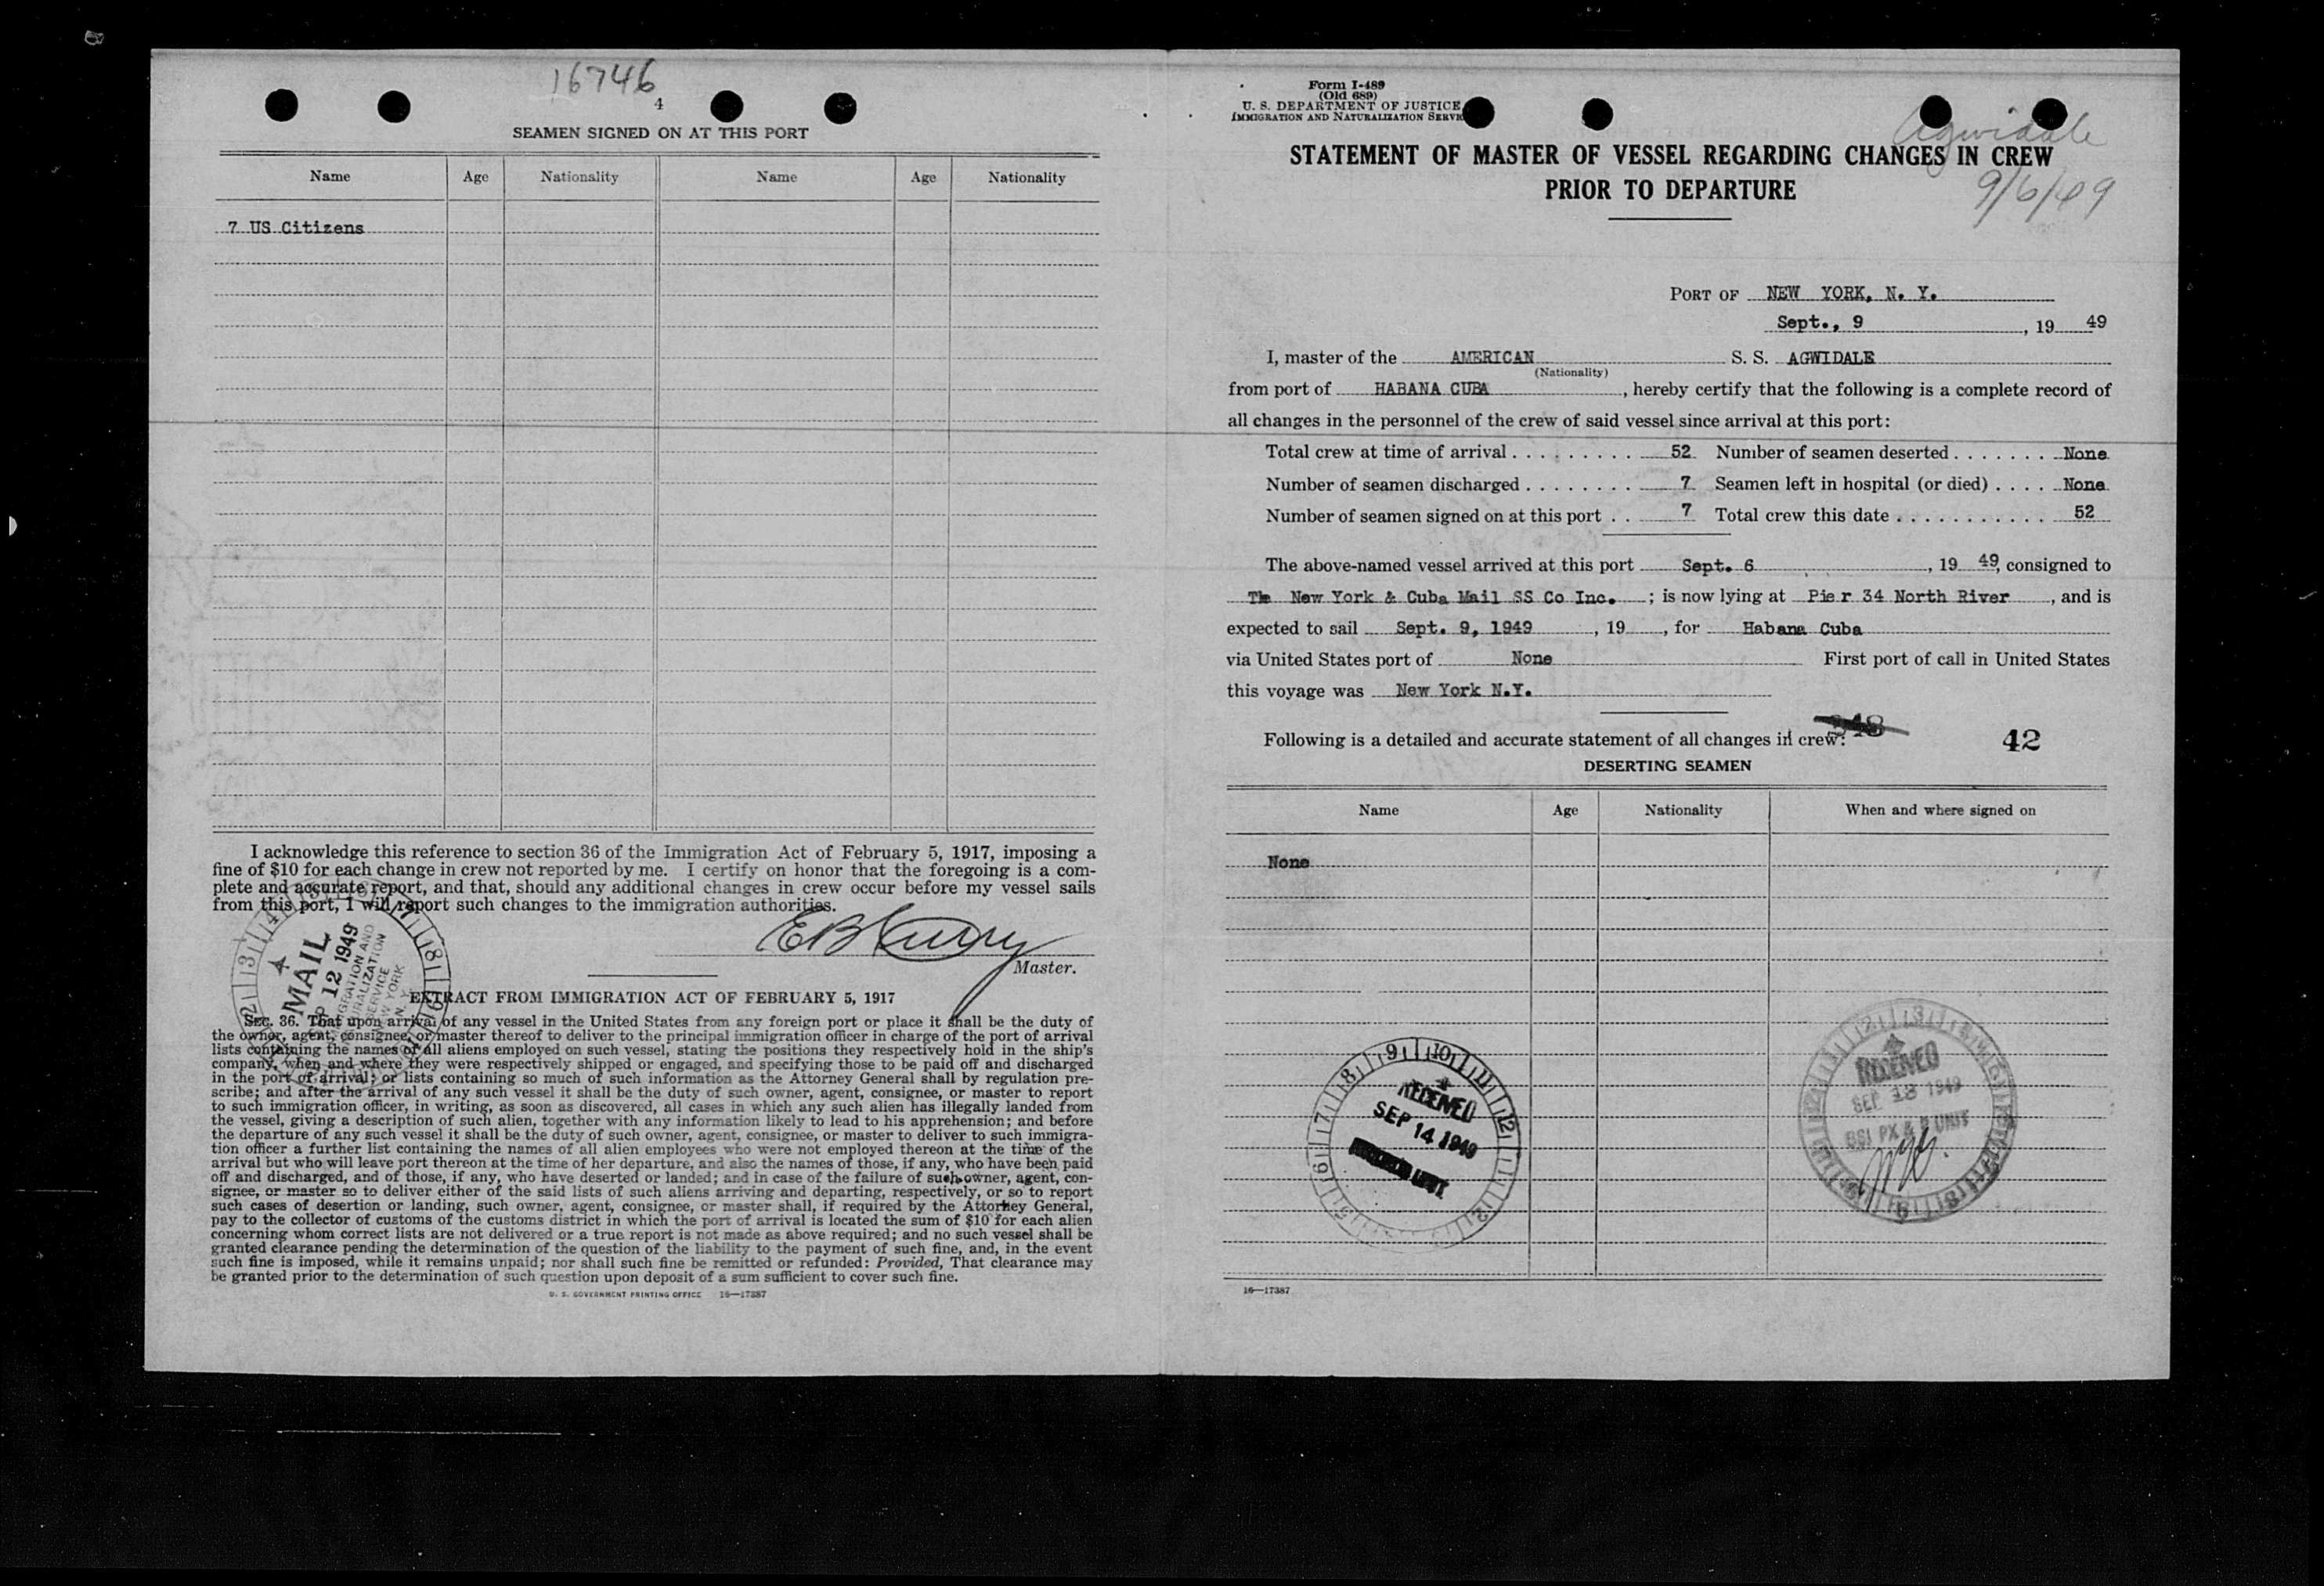 16746
4
SEAMEN SIGNED ON AT THIS PORT
Name Age Nationality Name Age Nationality
7 US Citizens
I acknowledge this reference to section 36 of the Immigration Act of February 5, 1917, imposing a
fine of $10 for each change in crew not reported by me. I certify on honor that the foregoing is a com-
plete and accurate report, and that, should any additional changes in crew occur before my vessel sails
from this port, I will report such changes to the immigration authorities.
Master.
MAIL
12 1949
EXTRACT FROM IMMIGRATION ACT OF FEBRUARY 5, 1917
SEC. 36. That upon arrival of any vessel in the United States from any foreign port or place it shall be the duty of
the owner, agent, consignee, or master thereof to deliver to the principal immigration officer in charge of the port of arrival
lists containing the names of all aliens employed on such vessel, stating the positions they respectively hold in the ship's
company, when and where they were respectively shipped or engaged, and specifying those to be paid off and discharged
in the port of arrival; or lists containing so much of such information as the Attorney General shall by regulation pre-
scribe; and after the arrival of any such vessel it shall be the duty of such owner, agent, consignee, or master to report
to such immigration officer, in writing, as soon as discovered, all cases in which any such alien has illegally landed from
the vessel, giving a description of such alien, together with any information likely to lead to his apprehension; and before
the departure of any such vessel it shall be the duty of such owner, agent, consignee, or master to deliver to such immigra-
tion officer a further list containing the names of all alien employees who were not employed thereon at the time of the
arrival but who will leave port thereon at the time of her departure, and also the names of those, if any, who have been paid
off and discharged, and of those, if any, who have deserted or landed; and in case of the failure of such owner, agent, con-
signee, or master so to deliver either of the said lists of such aliens arriving and departing, respectively, or so to report
such cases of desertion or landing, such owner, agent, consignee, or master shall, if required by the Attorney General,
pay to the collector of customs of the customs district in which the port of arrival is located the sum of $10 for each alien
concerning whom correct lists are not delivered or a true report is not made as above required; and no such vessel shall be
granted clearance pending the determination of the question of the liability to the payment of such fine, and, in the event
such fine is imposed, while it remains unpaid; nor shall such fine be remitted or refunded: Provided, That clearance may
be granted prior to the determination of such question upon deposit of a sum sufficient to cover such fine.
U. S. GOVERNMENT PRINTING OFFICE 16—17387
Form I-489
(Old 689)
U. S. DEPARTMENT OF JUSTICE
IMMIGRATION AND NATURALIZATION SERVIC
Agwidale
9/6/49
STATEMENT OF MASTER OF VESSEL REGARDING CHANGES IN CREW
PRIOR TO DEPARTURE
PORT OF NEW YORK, N. Y.
Sept., 9, 19 49
I, master of the AMERICAN S. S. AGWIDALE
(Nationality)
from port of HABANA CUBA, hereby certify that the following is a complete record of
all changes in the personnel of the crew of said vessel since arrival at this port:
Total crew at time of arrival . . . . . . . . . 52 Number of seamen deserted . . . . . . . None
Number of seamen discharged . . . . . . . . 7 Seamen left in hospital (or died) . . . . None
Number of seamen signed on at this port . . 7 Total crew this date . . . . . . . . . . . 52
The above-named vessel arrived at this port Sept. 6, 19 49, consigned to
The New York & Cuba Mail SS Co Inc. ; is now lying at Pier 34 North River, and is
expected to sail Sept. 9, 1949, 19 , for Habana Cuba
via United States port of None First port of call in United States
this voyage was New York N.Y.
Following is a detailed and accurate statement of all changes in crew:
42
DESERTING SEAMEN
Name Age Nationality When and where signed on
None
RECEIVED
SEP 14 1949
UNIT
RECEIVED
SEP 13 1949
BSI PX & P UNIT
16—17387